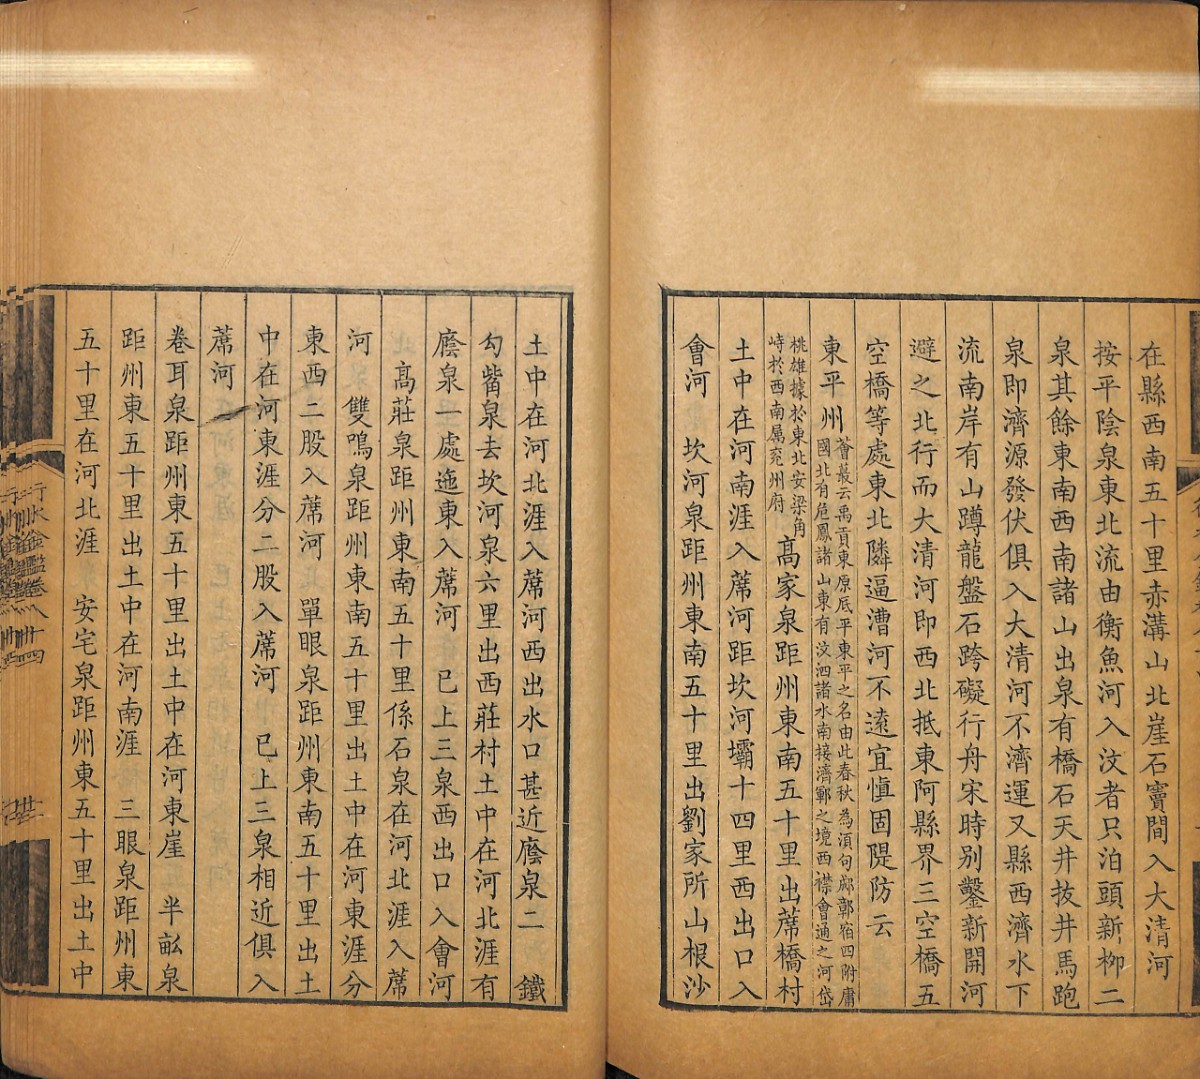 在縣西南五十里赤溝山北崖石竇間入大清河
按平陰泉東北流由衡魚河入汶者只泊頭新柳二
泉其餘東南西南諸山出泉有橋石天井拔井馬跑
泉即濟源發伏俱入大清河不濟運又縣西濟水下
流南岸有山蹲龍盤石跨礙行舟宋時别鑿新開河
避之北行而大清河即西北抵東阿縣界三空橋五
空橋等處東北隣逼漕河不遠宜慎固隄防云
東平州
薈蕞云禹貢東原底平東平之名由此春秋為須句郕鄣宿四附庸
國北有危鳳諸山東有汶泗諸水南接濟鄆之境西襟會通之河岱
桃雄據於東北安梁角
峙於西南属兖州府
高家泉距州東南五十里出蓆橋村
土中在河南涯入蓆河距坎河壩十四里西出口入
會河 坎河泉距州東南五十里出劉家所山根沙
土中在河北涯入蓆河西出水口甚近廕泉二 鐵
勾觜泉去坎河泉六里出西莊村土中在河北涯有
廕泉一處迤東入蓆河 已上三泉西出口入會河
高莊泉距州東南五十里係石泉在河北涯入蓆
河 雙鳴泉距州東南五十里出土中在河東涯分
東西二股入蓆河 單眼泉距州東南五十里出土
中在河東涯分二股入蓆河 已上三泉相近俱入
蓆河
卷耳泉距州東五十里出土中在河東崖 半畝泉
距州東五十里出土中在河南涯 三眼泉距州東
五十里在河北涯 安宅泉距州東五十里出土中
行水金鑑卷八十四